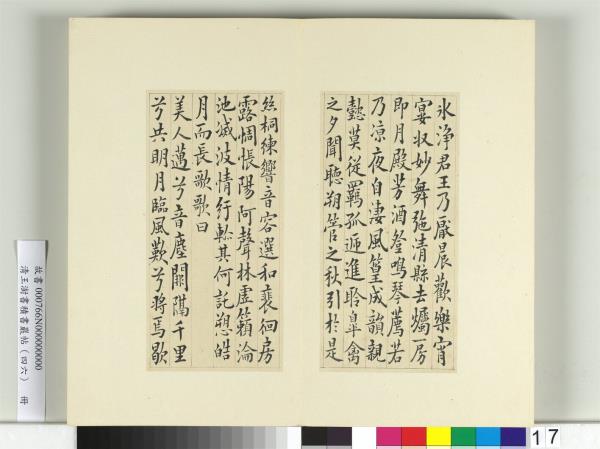 氷淨君王乃厭晨歡樂宵
宴収妙舞弛清縣去燭房
即月殿芳酒登鳴琴薦若
乃凉夜自淒風篁成韻親
懿莫從羈孤遞進聆皐禽
之夕聞聽朔管之秋引於是
絲桐練響音容選和裵徊房
露惆悵陽阿聲林虛籟淪
池滅波情紆軫其何託愬皓
月而長歌歌曰
美人邁兮音塵闕隔千里
兮共明月臨風歎兮將焉歇
故書 000766N000000000
清王澍書積書巖帖(四六) 冊
17